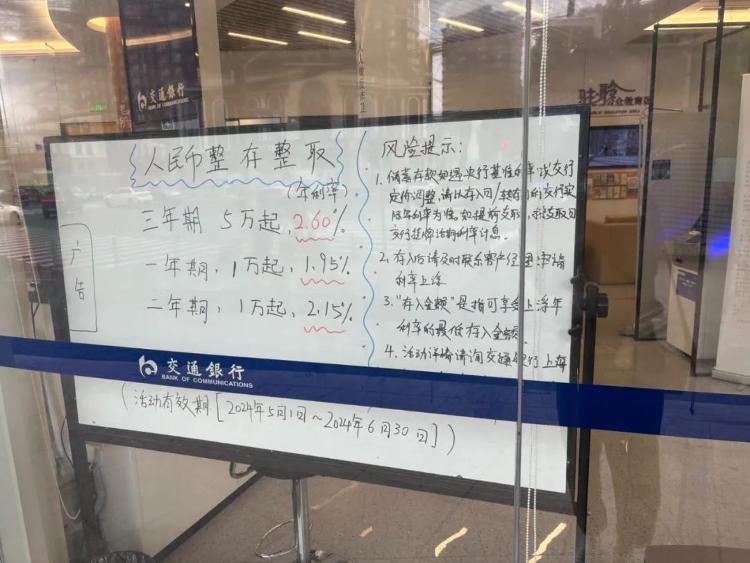 交通銀行
BANK OF COMMUNICATIONS
人民币整存整取
(年利率)
三年期 5万起, 2.60%
一年期, 1万起, 1.95%
二年期, 1万起, 2.15%
广告
风险提示:
1. 储蓄存款如遇央行基准利率/或交行
定价调整,请以存入日/转存日的交行实
际年利率为准。如提前支取,按支取日
交行挂牌活期利率计息。
2. 存入后请及时联系客户经理申请
利率上浮
3. "存入金额"是指可享受上浮年
利率的最低存入金额。
4. 活动详情请询交通银行上海
交通銀行
BANK OF COMMUNICATIONS
(活动有效期[2024年5月1日~2024年6月30日])